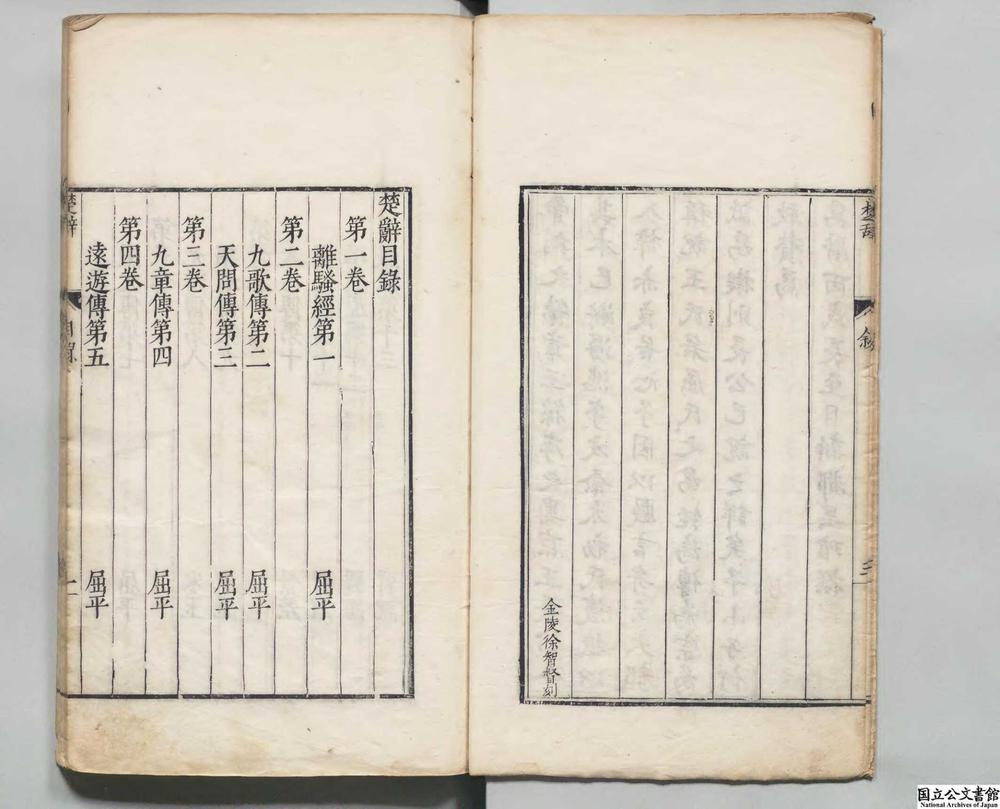 楚辭
叙
三
金陵徐智督刻
楚辭目錄
第一卷
離騷經第一 屈平
第二卷
九歌傳第二 屈平
天問傳第三 屈平
第三卷
九章傳第四 屈平
第四卷
遠遊傳第五 屈平
楚辭
目錄
一
国立公文書館
National Archives of Japan